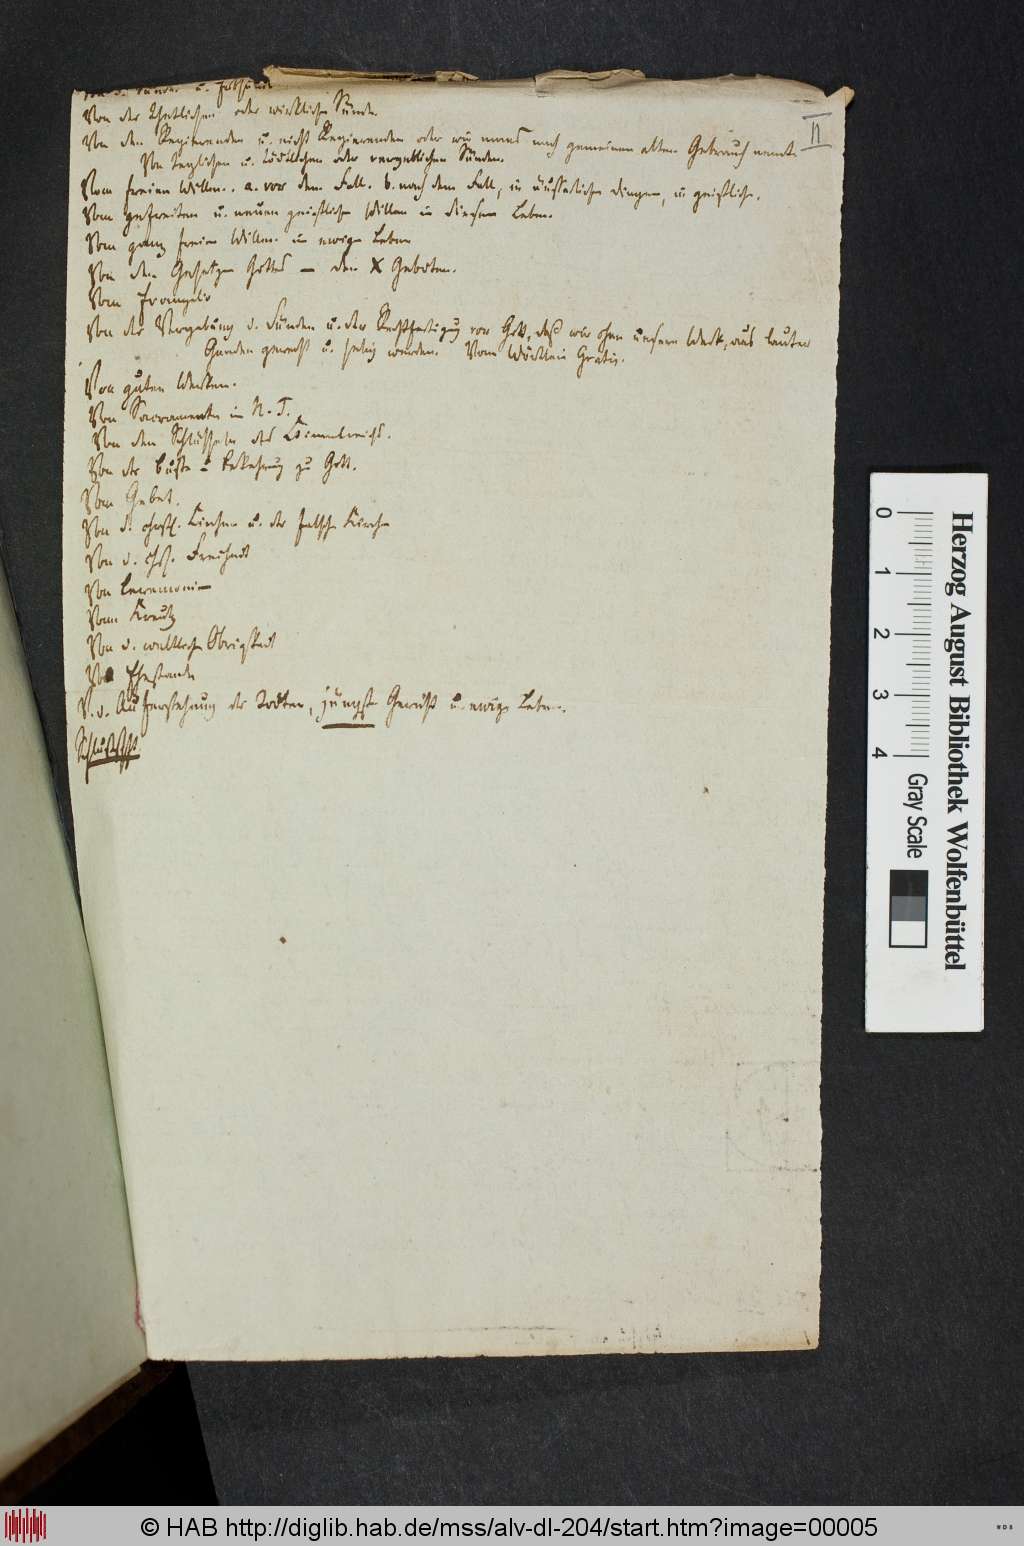 Von d. Sünde. u. Erbsünde
Von der thetlichen oder wirklichen Sünde.
II
Von den Regierenden u. nicht Regierenden oder wie mans nach gemeinem alten Gebrauch nennt
Von teglichen u. tödtlichen oder vergeblichen Sünden.
Vom freien Willen. a. vor dem Fall. b. nach dem Fall, in äusserlichen Dingen, in geistlichen.
Vom gefreiten u. neuen geistlichen Willen in diesem Leben.
Vom ganz freien Willen im ewigen Leben
Von dem Gesetzen Gottes — den X Geboten.
Vom Evangelio
Von der Vergebung d. Sünden u. der Rechtfertigung vor Gott, daß wir ohn unsere Werk, aus lauter
Gnaden gerecht u. selig werden. Vom Wörtlein Gratis.
Von guten Werken.
Von Sacramenten im N. T.
Von den Schlüsseln des Himmelreichs.
Von der Busse u. Bekehrung zu Gott.
Vom Gebet.
Von d. christl. Kirchen u. der falschen Kirchen
Von d. chr. Freiheit
Von Ceremonien
Vom Kreutz
Von d. weltlichen Obrigkeit
Von Ehestande
V. d. Auferstehung der Todten, jüngste Gericht u. ewige Leben.
Schlußschrift
Herzog August Bibliothek Wolfenbüttel
0 1 2 3 4
Gray Scale
© HAB http://diglib.hab.de/mss/alv-dl-204/start.htm?image=00005